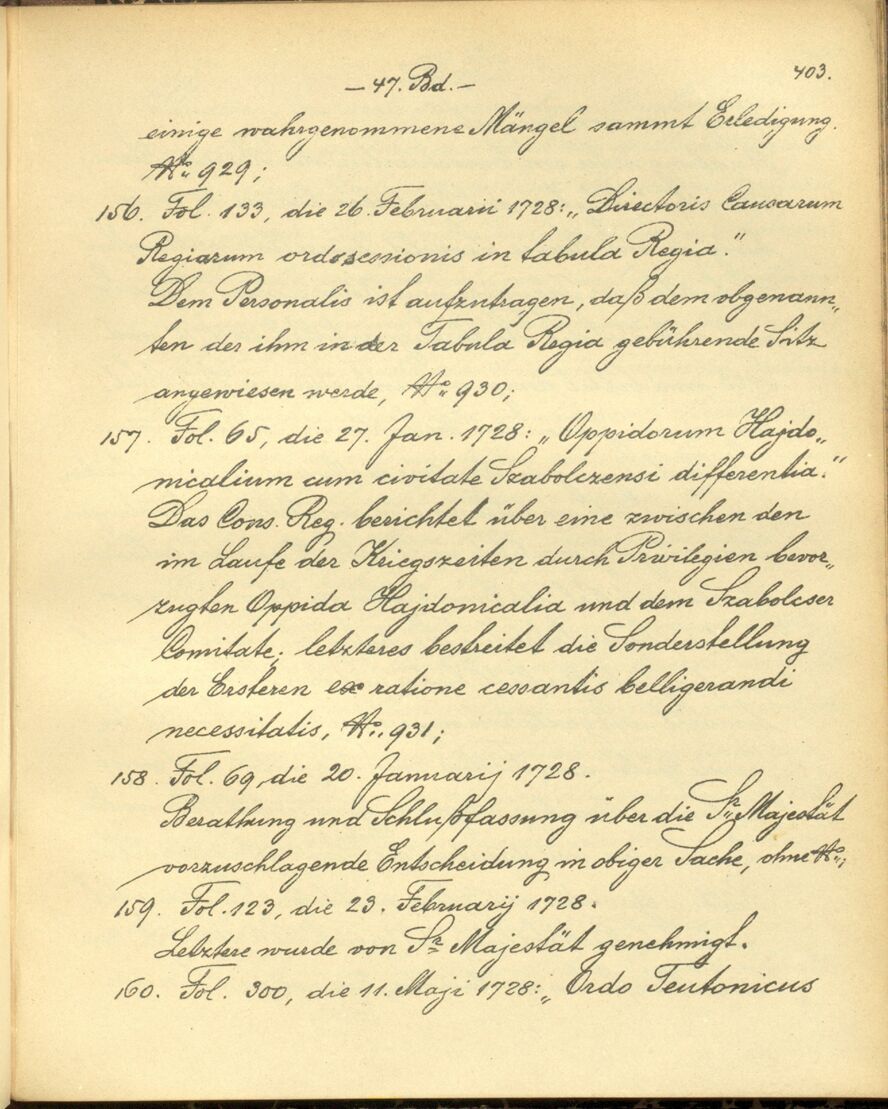 403.
— 47. Bd. —
einige wahrgenommene Mängel sammt Erledigung.
No 929;
156. Fol. 133, die 26. Februarii 1728: „Directoris Causarum
Regiarum ordo sessionis in tabula Regia."
Dem Personalis ist aufzutragen, daß dem obgenann„
ten der ihm in der Tabula Regia gebührende Sitz
angewiesen werde, No 930;
157. Fol. 65, die 27. Jan. 1728: „Oppidorum Hajdo„
nicalium cum civitate Szabolczensi differentia."
Das Cons. Reg. berichtet über eine zwischen den
im Laufe der Kriegszeiten durch Privilegien bevor„
zugten Oppida Hajdonicalia und dem Szabolcser
Comitate; letzteres bestreitet die Sonderstellung
der Ersteren ex ratione cessantis belligerandi
necessitatis, No 931;
158. Fol. 69, die 20. Januarij 1728.
Berathung und Schlußfassung über die Sr Majestät
vorzuschlagende Entscheidung in obiger Sache, ohne No;
159. Fol. 123, die 23. Februarij 1728.
Letztere wurde von Sr Majestät genehmigt.
160. Fol. 300, die 11. Maji 1728: „Ordo Teutonicus